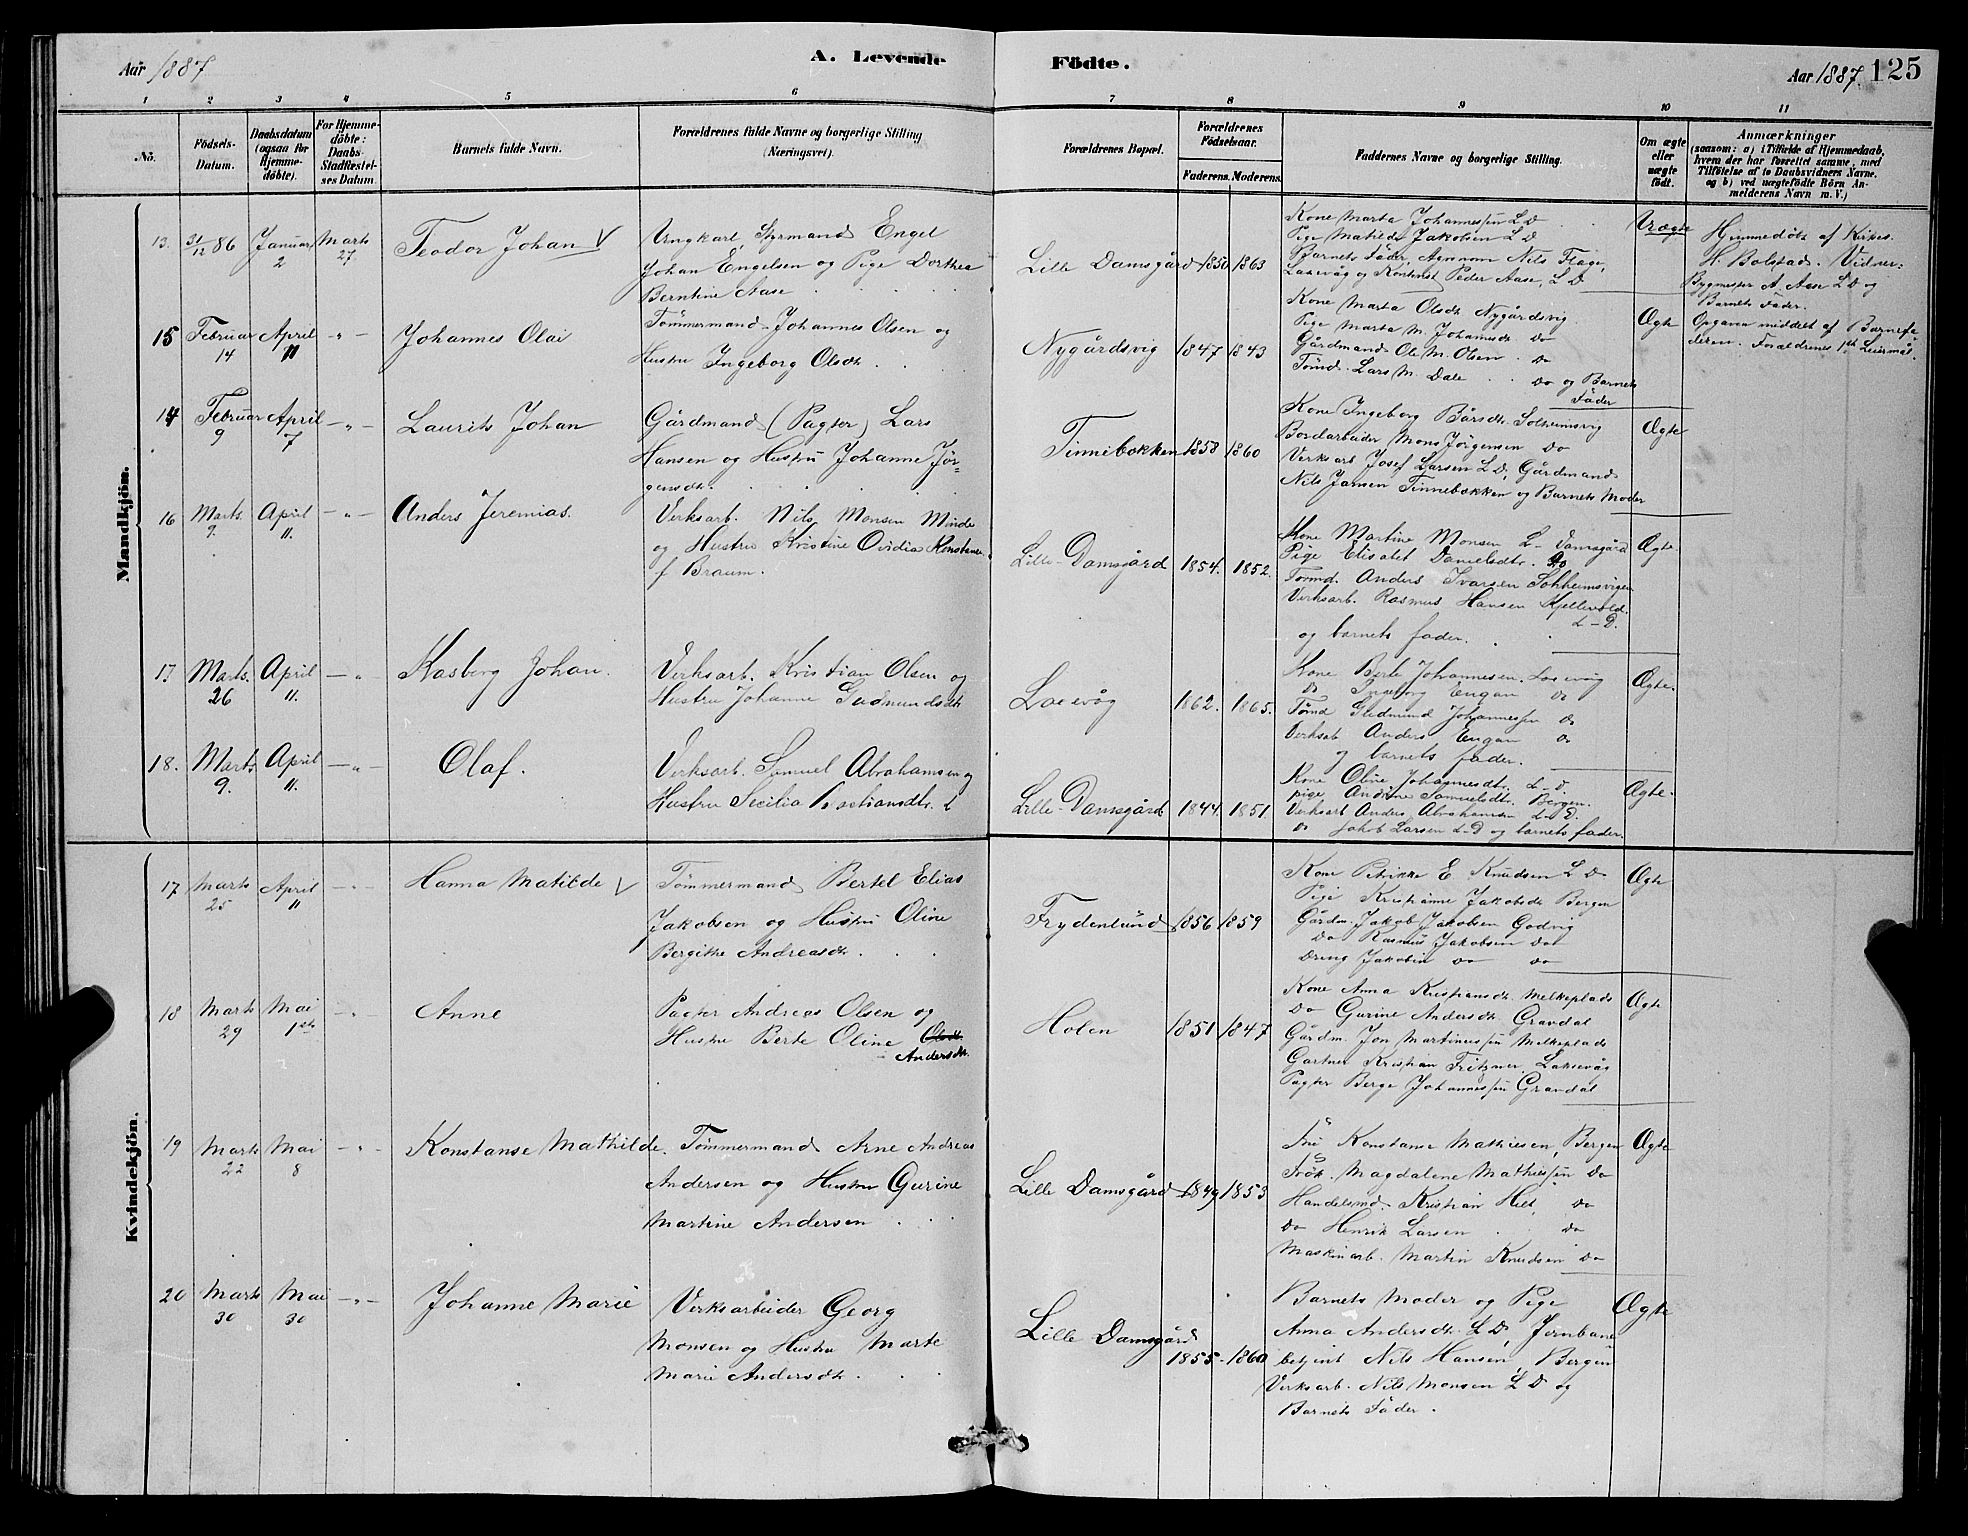 Aar 1887
A. Levende Födte.
Aar 1887. 125
1 2 3 4 5 6 7 8 9 10 11
No.
Födsels-Datum.
Daabsdatum (ogsaa for Hjemmedöbte).
For Hjemmedöbte: Daabs-Stadfæstelses Datum.
Barnets fulde Navn.
Forældrenes fulde Navne og borgerlige Stilling (Næringsvei).
Forældrenes Bopæl.
Forældrenes Födselsaar.
Faderens. Moderens.
Faddernes Navne og borgerlige Stilling.
Om ægte eller uægte født.
Anmærkninger
(saasom: a) i Tilfælde af Hjemmedaab,
hvem der har forrettet samme, med
Tilföielse af to Daabsvidners Navne.
og b) ved uægtefödte Börn An-
melderens Navn m. V.)
Mandkjön.
13. 31/12 86 Januar 2 Marts 27 Teodor Johan V
Ungkarl, Styrmand Engel
Johan Engelsen og Pige Dorthea
Berntine Aase
Lille Damsgård 1850 1863
Kone Marta Johannessen L D
Pige Matilde Jakobsen L D
Barnets Fader, Agronom Nils Flage,
Laxevåg og Kontorist Peder Aase, L D
Uægte
Hjemmedöbt af Kirkes.
H. Bolstad. Vidner:
Bygmester A. Aase L D og
Barnets Fader.
Opgaven middelt af Barnefa
deren. Forældrenes 1ste Leiermål.
15 Februar 14 April 11 - " - Johannes Olai
Tömmermand Johannes Olsen og
Hustru Ingeborg Olsdt.
Nygårdsvig 1847 1843
Kone Marta Olsdt Nygårdsvig
Pige Marta M. Johannsdt Do
Gårdmand Ole M. Olsen Do
Tömd. Lars M. Dale Do og Barnets
Fader
Ægte
14 Februar 9 April 7 - " - Laurits Johan
Gårdmand (Pagter) Lars
Hansen og Hustru Johanne Jör-
gensdt.
Tinnebækken 1858 1860
Kone Ingeborg Bårsdt. Solheimsvig
Bordarbeider Mons Jörgensen Do
Verksarb Josef Larsen L D, Gårdmand
Nils Jansen Tinnebækken og Barnets Moder
Ægte
16 Marts 9. April 11. - " - Anders Jeremias.
Verksarb. Nils Monsen Minde
og Hustru Kristine Ovidia Konstanse
f Braum.
Lille-Damsgård 1854. 1852.
Kone Martine Monsen L-Damsgård
Pige Elisabet Danielsdtr. Do
Tømd. Anders Ivarsen Solheimsvigen
Verksarb. Rasmus Hansen Kjellevold.
L-D.
og barnets fader.
Ægte.
17 Marts. 26 April 11. - " - Kasberg Johan.
Verksarb. Kristian Olsen og
Hustru Johanne Gudmundsdt
Laxevåg 1862. 1865.
Kone Berte Johannesen. Laxevåg
Do Ingeborg Engan Do
Tömd Gudmund Johannessen Do
Verksab Anders Engan Do
og barnets fader.
Ægte.
18. Marts 9. April 11. - " - Olaf.
Verksarb. Samuel Abrahamsen og
Hustru Secilia Bastiansdtr.
Lille-Damsgård 1844. 1851.
Kone Oline Johannesdtr. L-D.
pige Andrine Samuelsdtr. Bergen.
Verksarb Anders Abrahamsen L-D.
Do Jakob Larsen L-D og barnets fader.
Ægte.
Kvindekjön.
17 Marts 25 April 11 - " - Hanna Matilde V
Tömmermand Bertel Elias
Jakobsen og Hustru Oline
Bergitte Andreasdt.
Frydenlund 1856 1859
Kone Petrikke E Knudsen L D
Pige Kristianne Jakobsdt Bergen
Gårdm. Jakob Jakobsen Godvig
Do Rasmus Jakobsen Do
Dreng Jakobin Do Do
Ægte
18 Marts 29 Mai 1ste - " - Anne
Pagter Andreas Olsen og
Hustru Berte Oline Olsdt.
Andersdt.
Holen 1851 1847
Kone Anna Kristiansdt. Melkeplads
Do Gurine Andersdt. Gravdal
Gårdm. Jon Martinussen Melkeplads
Gartner Kristian Fritzner, Laksevåg
Pagter Berge Johannessen Gravdal
Ægte
19 Marts 22 Mai 8 - " - Konstanse Mathilde.
Tömmermand Arne Andreas
Andersen og Hustru Gurine
Martine Andersen
Lille Damsgård 1849 1853
Fru Konstanse Mathiesen, Bergen
Frök. Magdalene Mathiesen Do
Handelsmd. Kristian Hilt Do
Do Henrik Larsen Do
Maskinarb. Martin Knudsen Do
Ægte
20 Marts 30 Mai 30 - " - Johanne Marie
Verksarbeider Georg
Monsen og Hustru Marte
Marie Andersdt.
Lille Damsgård
1855 - 1860
Barnets Moder og Pige
Anna Andersdt. L D, Jernbane
betjent Nils Hansen, Bergen
Verksarb. Nils Monsen L D og
Barnets Fader.
Ægte